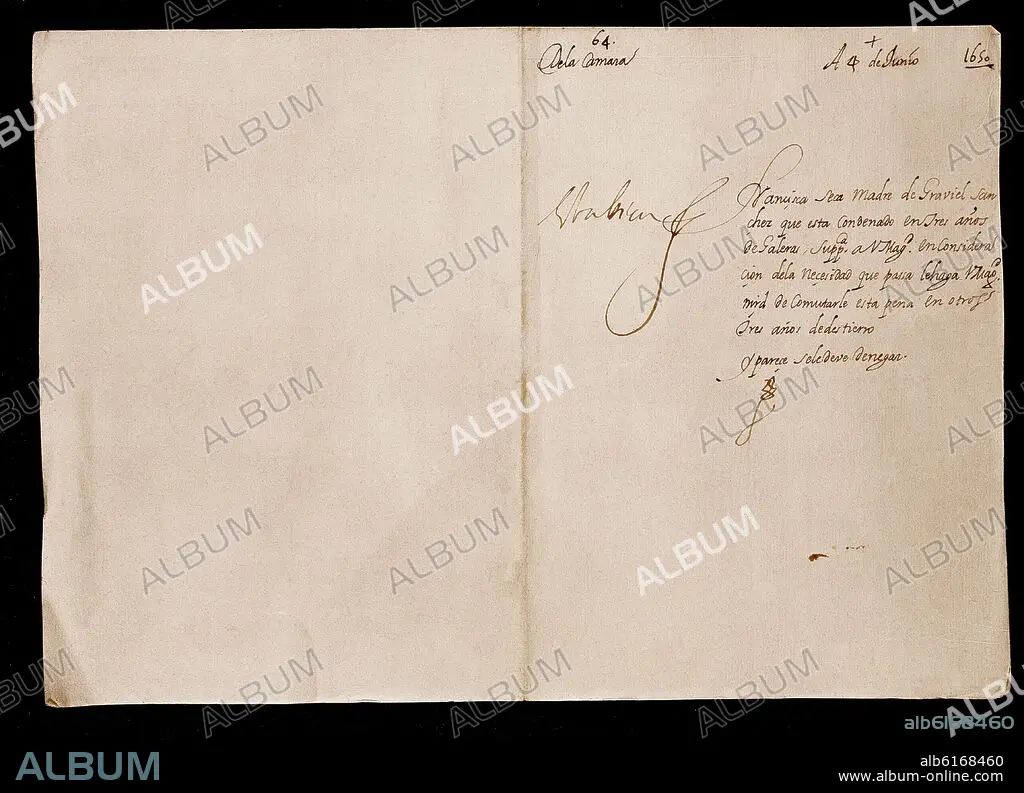 64.
De la Camara
+
A 4 de Junio 1650
Francisca Seca Madre de Graviel San
chez que esta Condenado en tres años
de Galeras, Supp.ca a V Mag.d en Considera
cion dela Necesidad que passa lehaga V Mag.d
mrd de Comutarle esta pena en otros
tres años dedestierro
y parece seledeve denegar.
ALBUM
alb6168460
alb6168460
www.album-online.com